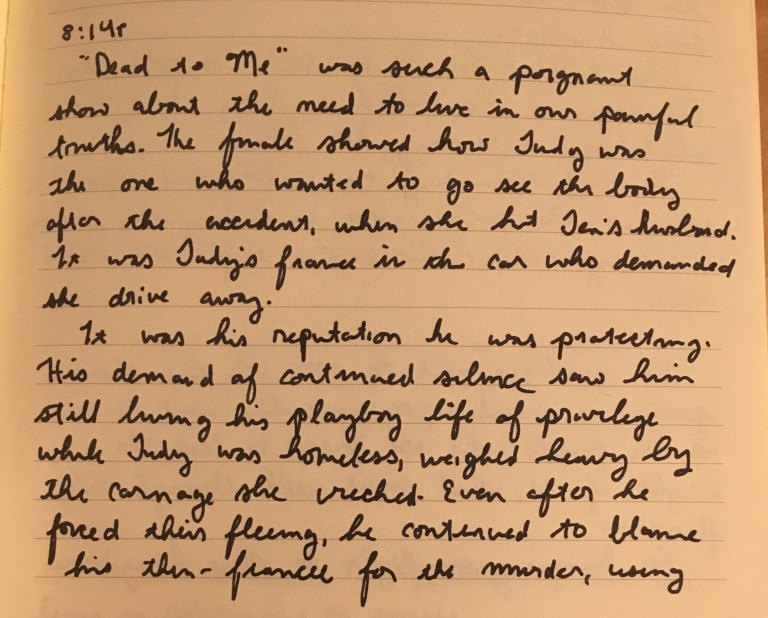 8:14p
"Dead to Me" was such a poignant
show about the need to live in our painful
truths. The finale showed how Judy was
the one who wanted to go see the body
after the accident, when she hit Jen's husband.
It was Judy's fiance in the car who demanded
she drive away.
It was his reputation he was protecting.
His demand of continued silence saw him
still living his playboy life of privilege
while Judy was homeless, weighed heavy by
the carnage she wreched. Even after he
forced their fleeing, he continued to blame
his then-francee for the murder, using